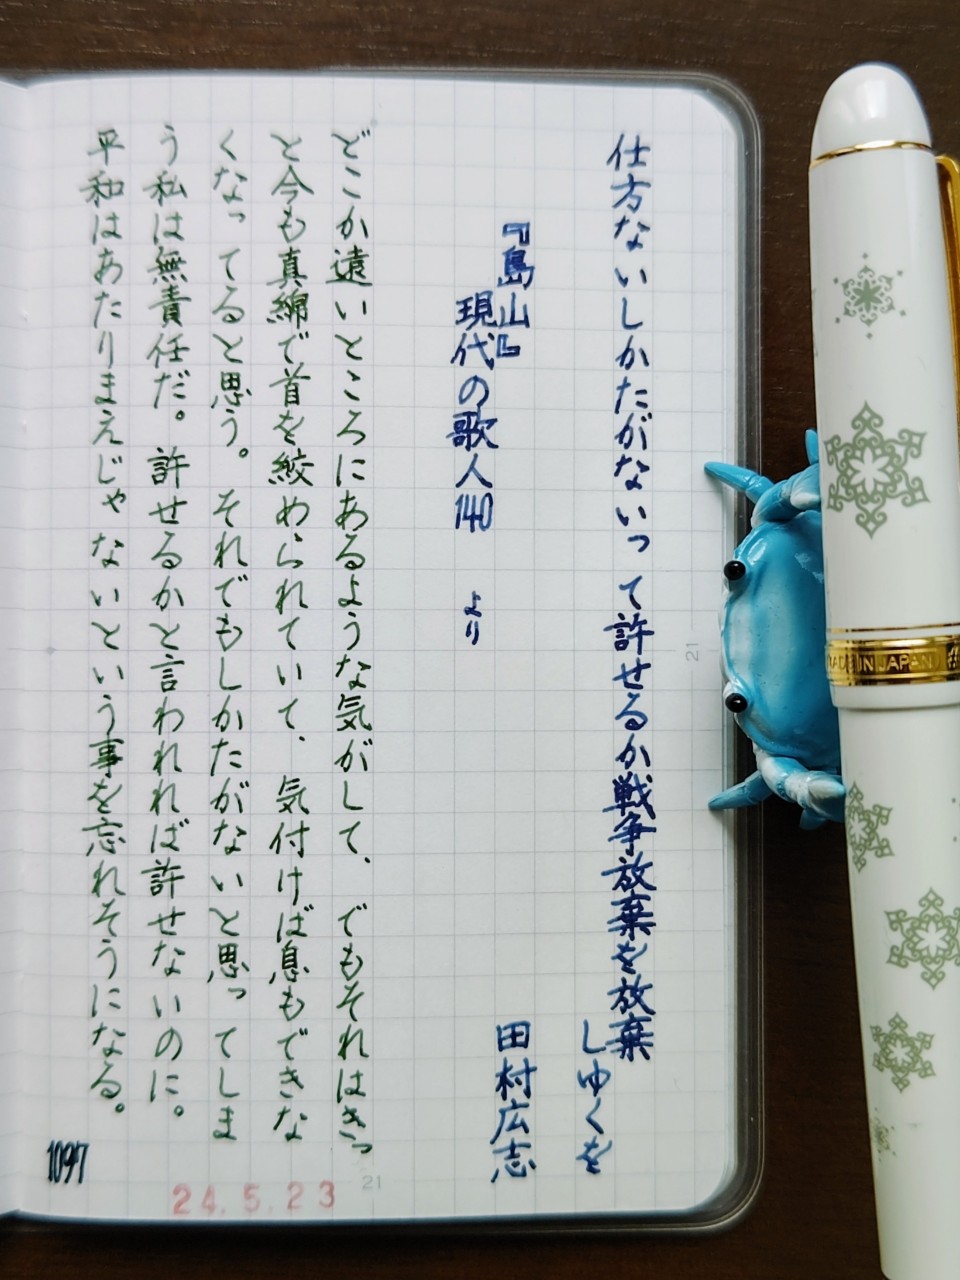 仕方ないしかたがないって許せるか戦争放棄を放棄
しゆくを
田村広志
『島山』
現代の歌人140 より
どこか遠いところにあるような気がして、でもそれはきっ
と今も真綿で首を絞められていて、気付けば息もできな
くなってると思う。それでもしかたがないと思ってしま
う私は無責任だ。許せるかと言われれば許せないのに。
平和はあたりまえじゃないという事を忘れそうになる。
1097
24.5.23
21
21
MADE IN JAPAN